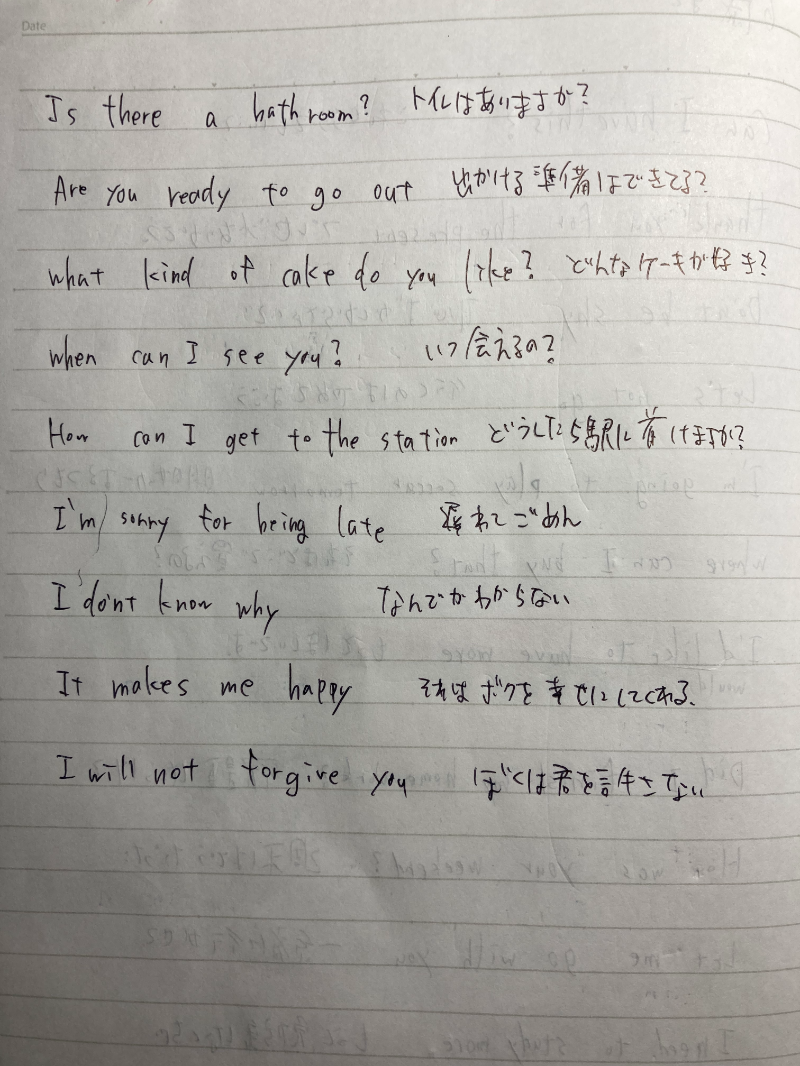 Date
Is there a bathroom? トイレはありますか?
Are you ready to go out 出かける準備はできてる?
what kind of cake do you like? どんなケーキが好き?
when can I see you? いつ会えるの?
How can I get to the station どうしたら駅に着けますか?
I'm sorry for being late 遅れてごめん
I don't know why なんでかわからない
It makes me happy それはボクを幸せにしてくれる、
I will not forgive you ぼくは君を許さない